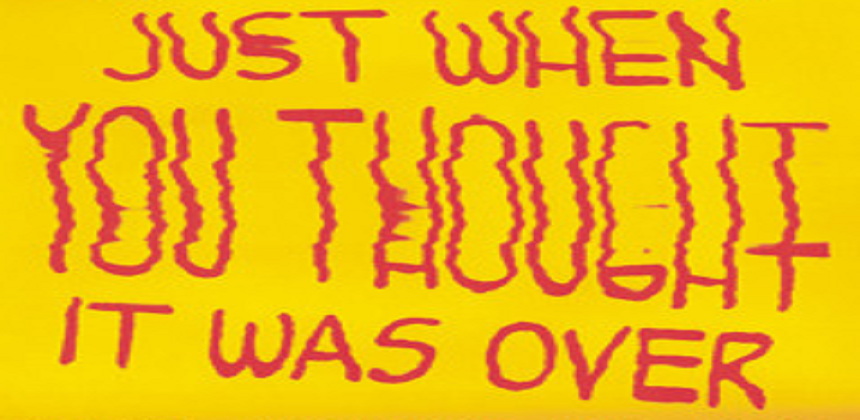 JUST WHEN
YOU THOUGHT
IT WAS OVER